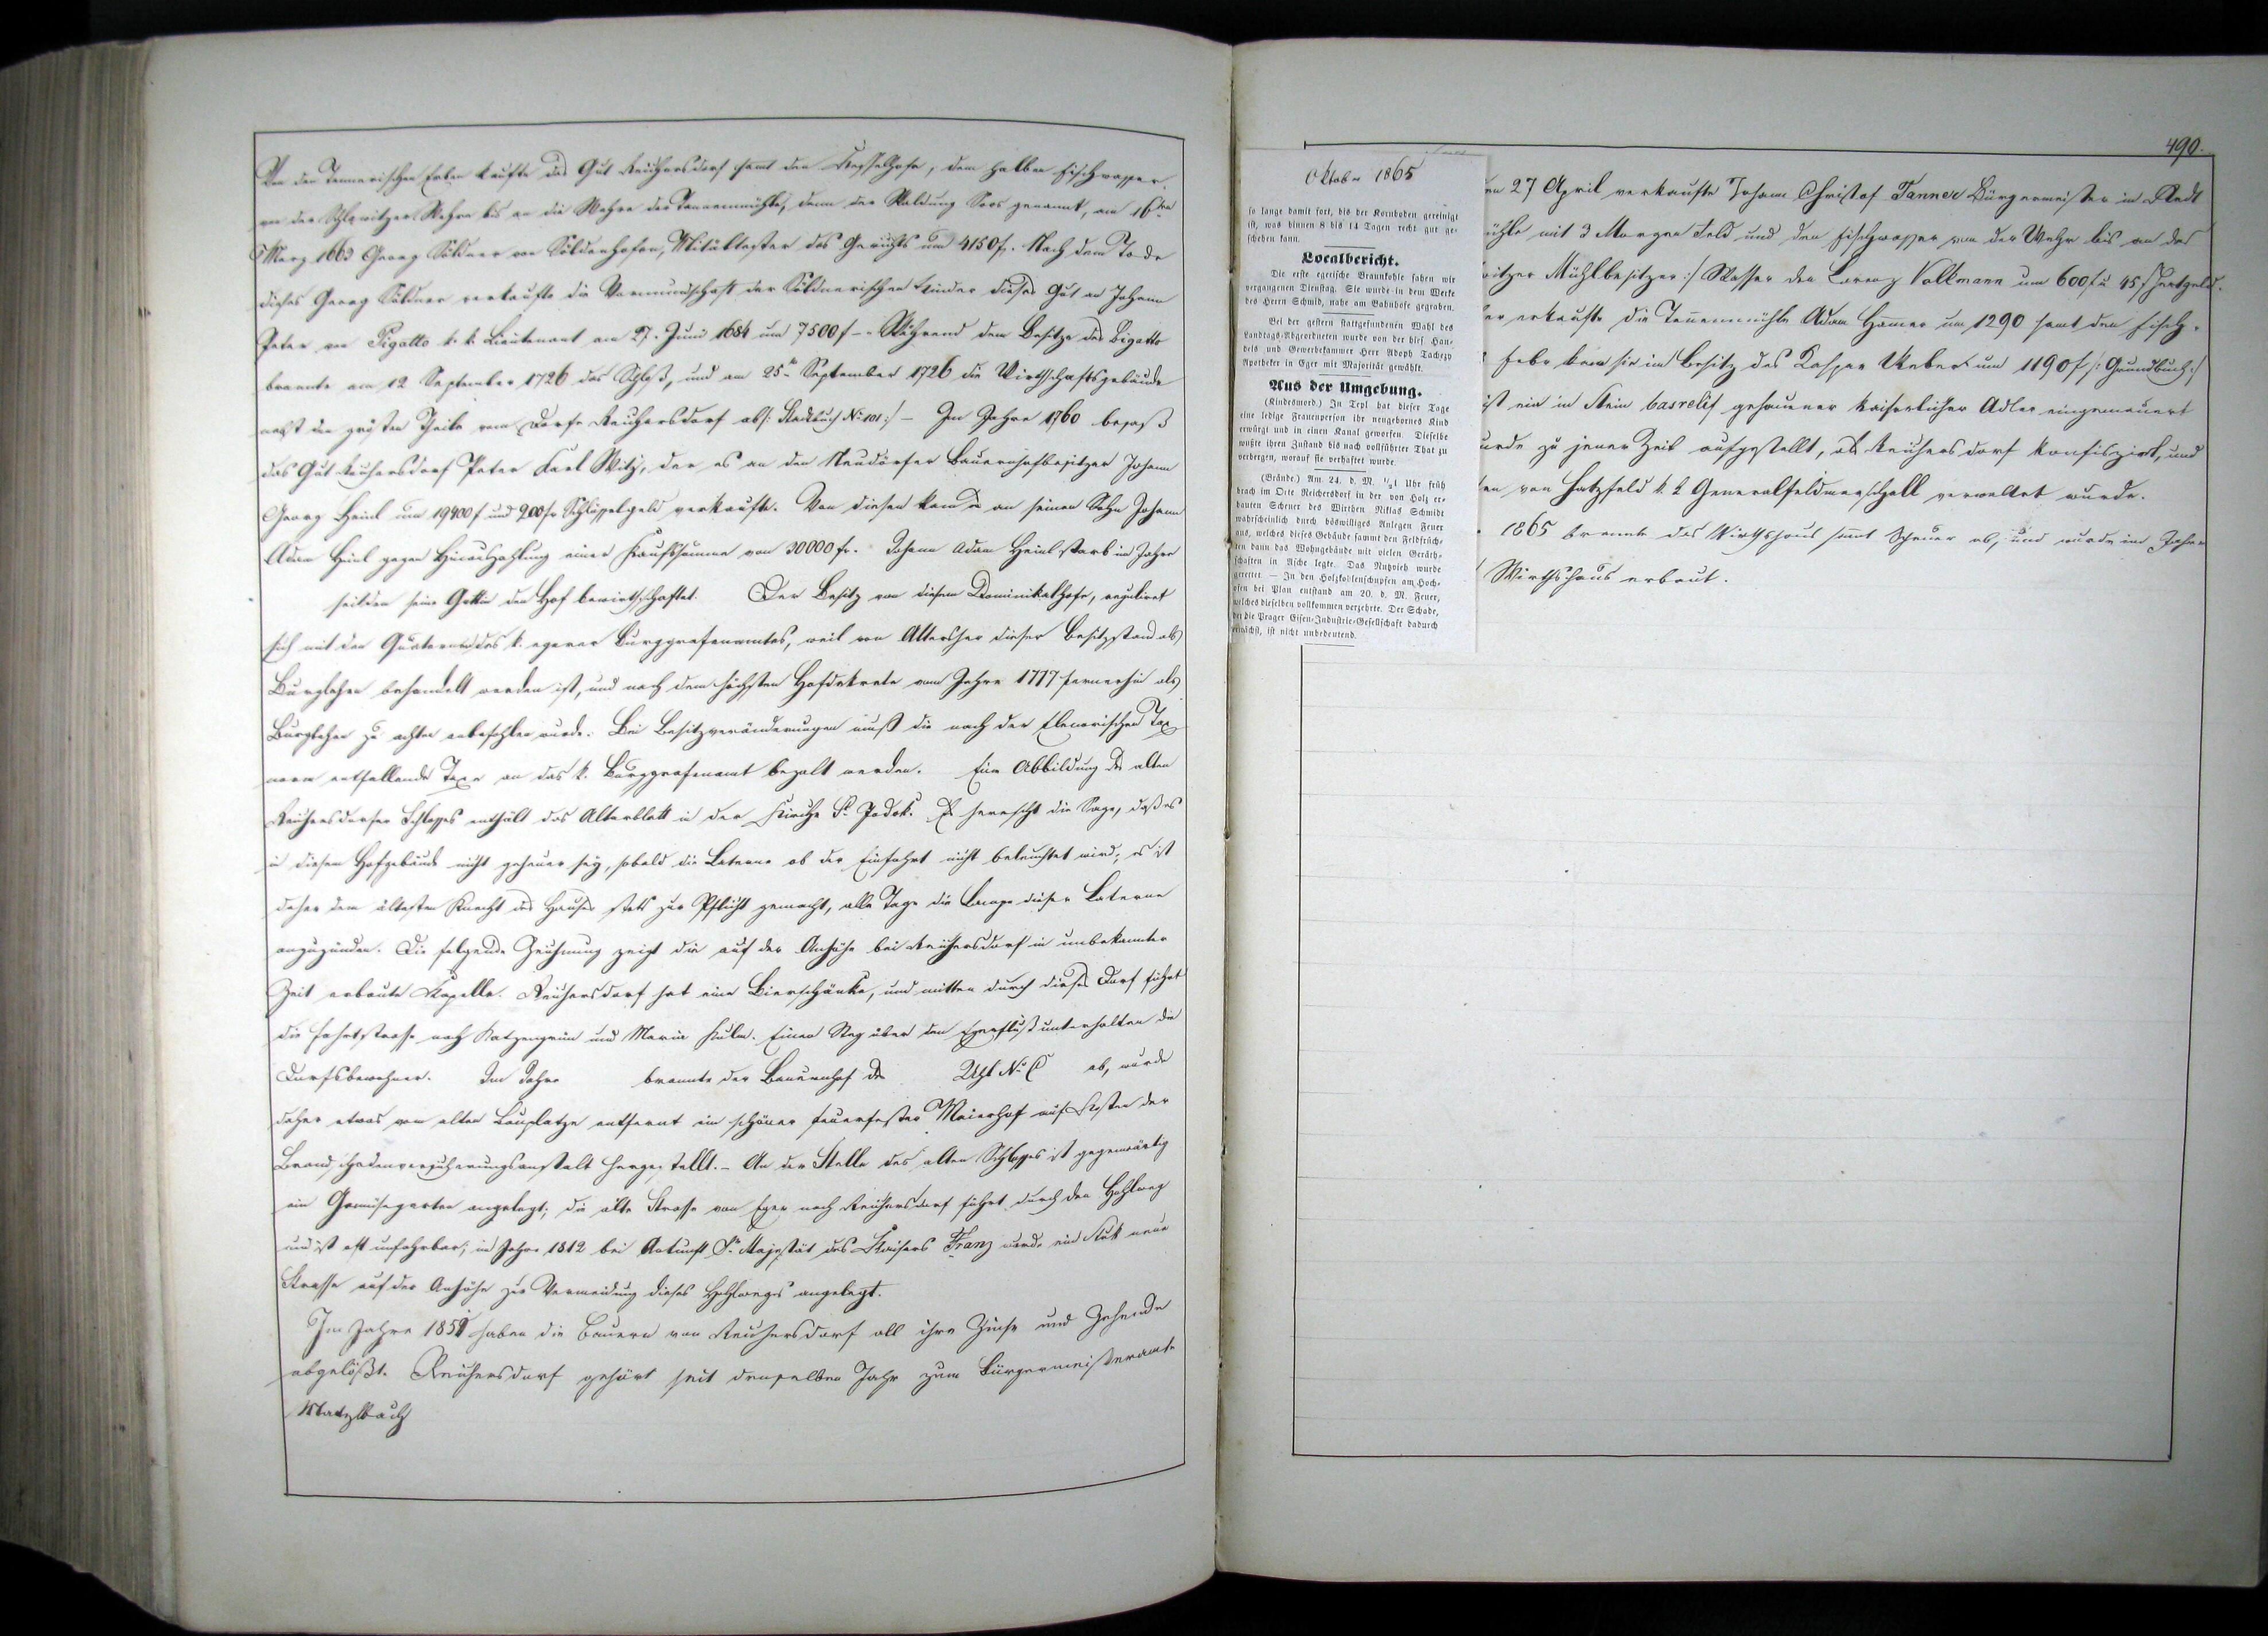 Von den Tannerischen Erben kaufte das Gut Reichersdorf sammt den Dösselhofe, dem halben Fischwasser
von der Schlowitzer Wehre bis an die Wehre der Tannenmühle, dann der Waldung Soos genannt, am 16ten
März 1663 Georg Söldner von Söldenhofen, Mitältester des Gerichts um 4150 f. Nach dem Tode
dieses Georg Söldner verkaufte die Vormundschaft der Söldnerischen Kinder dieses Gut an Johann
Peter von Pigatto k. k. Lieutenant am 27. Juni 1684 um 7500 f – Während dem Besitze des Bigatto
brannte am 12 September 1726 das Schloß, und am 25ten September 1726 die Wirthschaftsgebäude
nebst den größten Theile vom Dorfe Reichersdorf ab /: Stadtbuch No 101 :/ – Im Jahre 1760 besaß
das Gut Reichersdorf Peter Karl Witz, der es an den Neudörfer Bauernhofbesitzer Johann
Georg Heinl um 19400 f und 900 fr Schlüsselgeld verkaufte. Von diesen kam es an seinen Sohn Johann
Adam Heinl gegen Hinauszahlung einer Kaufssumme von 30000 fr. Johann Adam Heinl starb im Jahre
seitdem seine Gattin den Hof bewirthschaftet. Der Besitz von diesem Dominikalhofe, regulirt
sich mit den Quaternen des k. egerer Burggrafenamtes, weil von Altersher dieser Besitzstand als
Burglehen behandelt worden ist, und nach dem höchsten Hofdekrete vom Jahre 1777 fernerhin als
Burglehen zu achten anbefohlen wurde. Bei Besitzveränderungen muß die nach der Taxnorm
entfallende Taxe an das k. Burggrafenamt bezalt werden. Eine Abbildung des alten
Reichersdorfer Schlosses enthält das Altarblatt in der Kirche St Jodok. Es herrscht die Sage, daß es
in diesem Hofgebäude nicht geheuer sey, sobald die Laterne ob der Einfahrt nicht beleuchtet wird; es ist
daher dem ältesten Knecht des Hauses stets zur Pflicht gemacht, alle Tage die Lampe dieser Laterne
anzuzünden. Die folgende Zeichnung zeigt die auf der Anhöhe bei Reichersdorf in unbekannter
Zeit erbaute Kapelle. Reichersdorf hat eine Bierschänke, und mitten durch dieses Dorf führt
die Fahrtstrasse nach Katzengrün und Maria Kulm. Einen Steg über den Egerfluß unterhalten die
Dorfsbewohner. Im Jahre brannte der Bauernhof des No ab, wurde
daher etwas vom alten Bauplatze entfernt ein schöner feuerfester Maierhof auf Kosten der
Brandschadenversicherungsanstalt hergestellt. – An der Stelle des alten Schlosses ist gegenwärtig
ein Gemüsegarten angelegt; die alte Strasse von Eger nach Reichersdorf führt durch den Hohlweg
und ist oft unfahrbar; im Jahre 1812 bei Ankunft Sr. Majestät des Kaisers Franz wurde ein Stük neue
Strasse auf der Anhöhe zur Vermeidung dieses Hohlweges angelegt.
Im Jahre 1851 haben die Bauern von Reichersdorf all ihre Zinse und Zehende
abgelößt. Reichersdorf gehört seit demselben Jahr zum Bürgermeisteramte
Matzlbach
490.
Oktober 1865
so lange damit fort, bis der Kornboden gereinigt
ist, was binnen 8 bis 14 Tagen recht gut ge-
schehen kann.
Localbericht.
Die erste egerische Braunkohle sahen wir
vergangenen Dienstag. Sie wurde in dem Werke
des Herrn Schmid, nahe am Bahnhofe gegraben.
Bei der gestern stattgefundenen Wahl des
Landtags-Abgeordneten wurde von der hies. Han-
dels und Gewerbekammer Herr Adolph Tachezy
Apotheker in Eger mit Majorität gewählt.
Aus der Umgebung.
(Kindesmord.) In Tepl hat dieser Tage
eine ledige Frauensperson ihr neugebornes Kind
erwürgt und in einen Kanal geworfen. Dieselbe
wußte ihren Zustand bis nach vollführter That zu
verbergen, worauf sie verhaftet wurde.
(Brände.) Am 24. d. M. 1/21 Uhr früh
brach im Orte Reichersdorf in der von Holz er-
bauten Scheuer des Wirthen Niklas Schmidt
wahrscheinlich durch böswilliges Anlegen Feuer
aus, welches dieses Gebäude sammt den Feldfrüch-
ten dann das Wohngebäude mit vielen Geräth-
schaften in Asche legte. Das Nutzvieh wurde
gerettet. — In den Holzkohlenschupfen am Hoch-
ofen bei Plan entstand am 20. d. M. Feuer,
welches dieselben vollkommen verzehrte. Der Schade,
der die Prager Eisen-Industrie-Gesellschaft dadurch
erwächst, ist nicht unbedeutend.
en 27 April verkaufte Johann Christof Tanner Bürgermeister in Redt
ühle mit 3 Morgen Feld und den Fischwasser von der Wehr bis an das
witzer Mühlbesitzer :/ Wasser den Lorenz Vollmann um 600 f u 45 f Hertgeld.
er erkaufte die Tannenmühle Adam Hamer um 1290 samt den Fisch-
Febr kam sie in Besitz des Kaspar Ueberl um 1190 f /: Grundbuch :/
ist ein in Stein basrelif gehauener kaiserlicher Adler eingemauert
urde zu jener Zeit aufgestellt, als Reichersdorf konfiszirt, und
en von Hatzfeld k. k Generalfeldmarschall verwaltet wurde.
1865 brannte das Wirthshaus samt Scheuer ab, und wurde im Jahre
Wirthshaus erbaut.